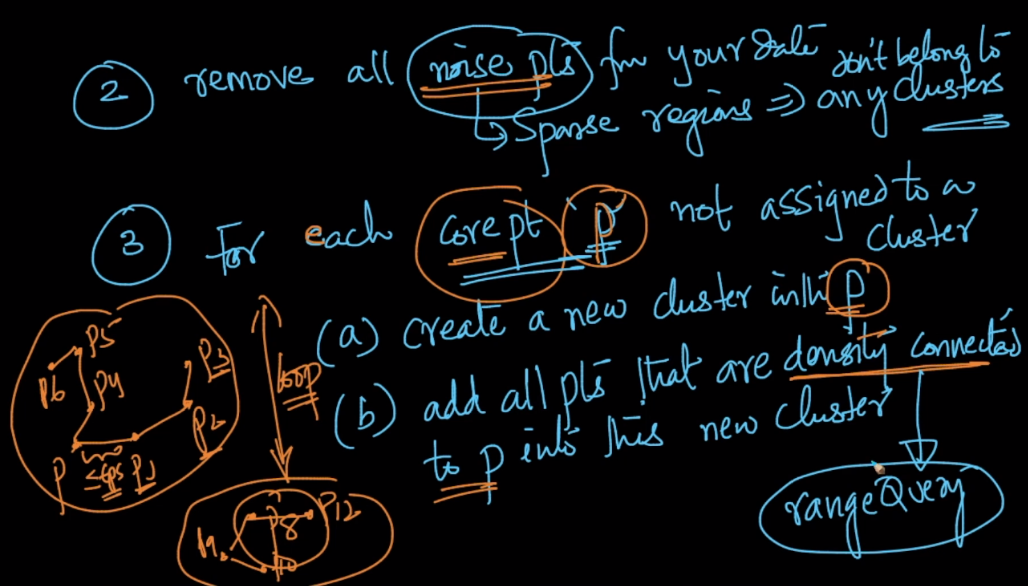 2 remove all noise pts from your data don't belong to
↳ Sparse regions ⇒ any clusters
3 For each core pt 'p' not assigned to a
cluster
(a) create a new cluster with p
(b) add all pts that are density connected
to p into this new cluster
rangeQuery
loop
P5
P6 P4 P3
P2
P ≤eps P1
P8 P12